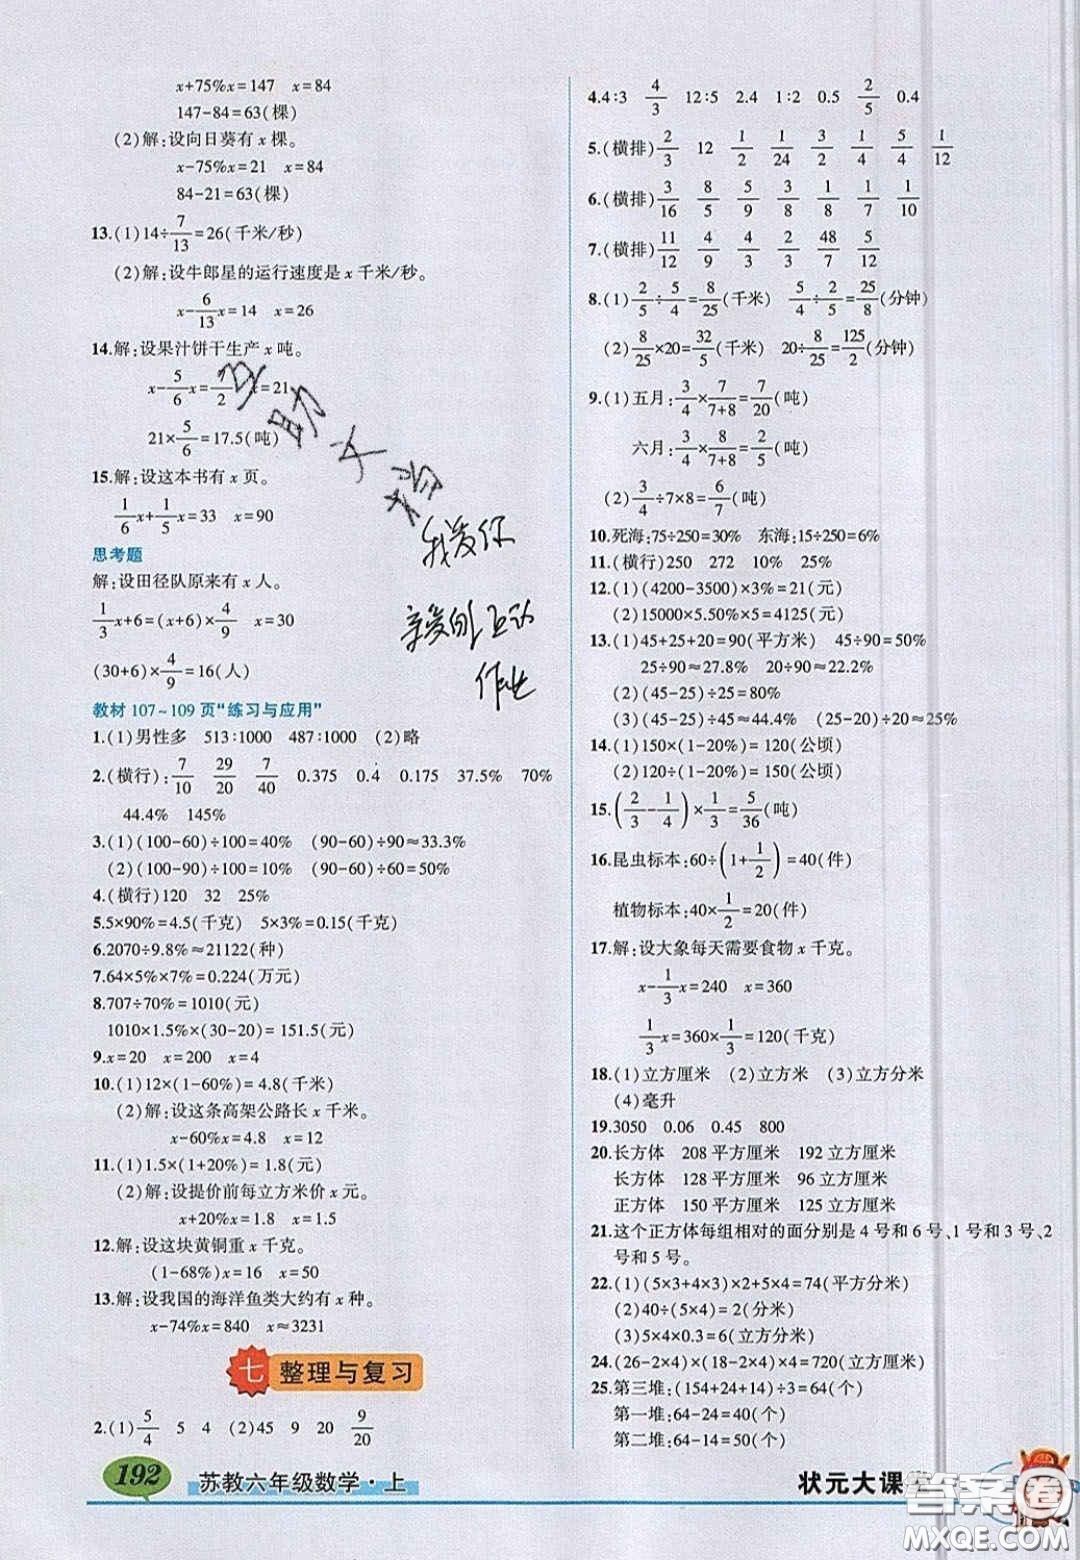 x+75%x=147　x=84
147-84=63(棵)
(2)解:设向日葵有 x 棵。
x-75%x=21　x=84
84-21=63(棵)
13.(1)14÷7/13=26(千米/秒)
(2)解:设牛郎星的运行速度是 x 千米/秒。
x-6/13x=14　x=26
14.解:设果汁饼干生产 x 吨。
x-5/6x=7/2　x=21
21×5/6=17.5(吨)
15.解:设这本书有 x 页。
1/6x+1/5x=33　x=90
思考题
解:设田径队原来有 x 人。
1/3x+6=(x+6)×4/9　x=30
(30+6)×4/9=16(人)
教材 107~109 页“练习与应用”
1.(1)男性多　513∶1000　487∶1000　(2)略
2.(横行):7/10　29/20　7/40　0.375　0.4　0.175　37.5%　70%
44.4%　145%
3.(1)(100-60)÷100=40%　(90-60)÷90≈33.3%
(2)(100-90)÷100=10%　(90-60)÷60=50%
4.(横行)120　32　25%
5.5×90%=4.5(千克)　5×3%=0.15(千克)
6.2070÷9.8%≈21122(种)
7.64×5%×7%=0.224(万元)
8.707÷70%=1010(元)
1010×1.5%×(30-20)=151.5(元)
9.x=20　x=200　x=4
10.(1)12×(1-60%)=4.8(千米)
(2)解:设这条高架公路长 x 千米。
x-60%x=4.8　x=12
11.(1)1.5×(1+20%)=1.8(元)
(2)解:设提价前每立方米价 x 元。
x+20%x=1.8　x=1.5
12.解:设这块黄铜重 x 千克。
(1-68%)x=16　x=50
13.解:设我国的海洋鱼类大约有 x 种。
x-74%x=840　x≈3231
七 整理与复习
2.(1)5/4　5　4　(2)45　9　20　9/20
4.4∶3　4/3　12∶5　2.4　1∶2　0.5　2/5　0.4
5.(横排)2/3　12　1/2　1/24　3/2　1/4　5/4　1/12
6.(横排)3/16　8/5　5/9　3/8　1/8　1/7　1/10
7.(横排)11/12　4/9　4/3　2/3　48/7　5/12
8.(1)2/5÷5/4=8/25(千米)　5/4÷2/5=25/8(分钟)
(2)8/25×20=32/5(千米)　20÷8/25=125/2(分钟)
9.(1)五月:3/4×7/(7+8)=7/20(吨)
六月:3/4×8/(7+8)=2/5(吨)
(2)3/4÷7×8=6/7(吨)
10.死海:75÷250=30%　东海:15÷250=6%
11.(横行)250　272　10%　25%
12.(1)(4200-3500)×3%=21(元)
(2)15000×5.50%×5=4125(元)
13.(1)45+25+20=90(平方米)　45÷90=50%
25÷90≈27.8%　20÷90≈22.2%
(2)(45-25)÷25=80%
(3)(45-25)÷45≈44.4%　(25-20)÷20=25%
14.(1)150×(1-20%)=120(公顷)
(2)120÷(1-20%)=150(公顷)
15.(2/3-1/4)×1/3=5/36(吨)
16.昆虫标本:60÷(1+1/2)=40(件)
植物标本:40×1/2=20(件)
17.解:设大象每天需要食物 x 千克。
x-1/3x=240　x=360
1/3x=360×1/3=120(千克)
18.(1)立方厘米　(2)立方米　(3)立方分米
(4)毫升
19.3050　0.06　0.45　800
20.长方体　208 平方厘米　192 立方厘米
长方体　128 平方厘米　96 立方厘米
正方体　150 平方厘米　125 立方厘米
21.这个正方体每组相对的面分别是 4 号和 6 号、1 号和 3 号、2
号和 5 号。
22.(1)(5×3+4×3)×2+5×4=74(平方分米)
(2)40÷(5×4)=2(分米)
(3)5×4×0.3=6(立方分米)
24.(26-2×4)×(18-2×4)×4=720(立方厘米)
25.第三堆:(154+24+14)÷3=64(个)
第一堆:64-24=40(个)
第二堆:64-14=50(个)
互助文档
我爱你
亲爱的互动
作业
192
苏教六年级数学·上
状元大课
答案圈
MXQE.COM